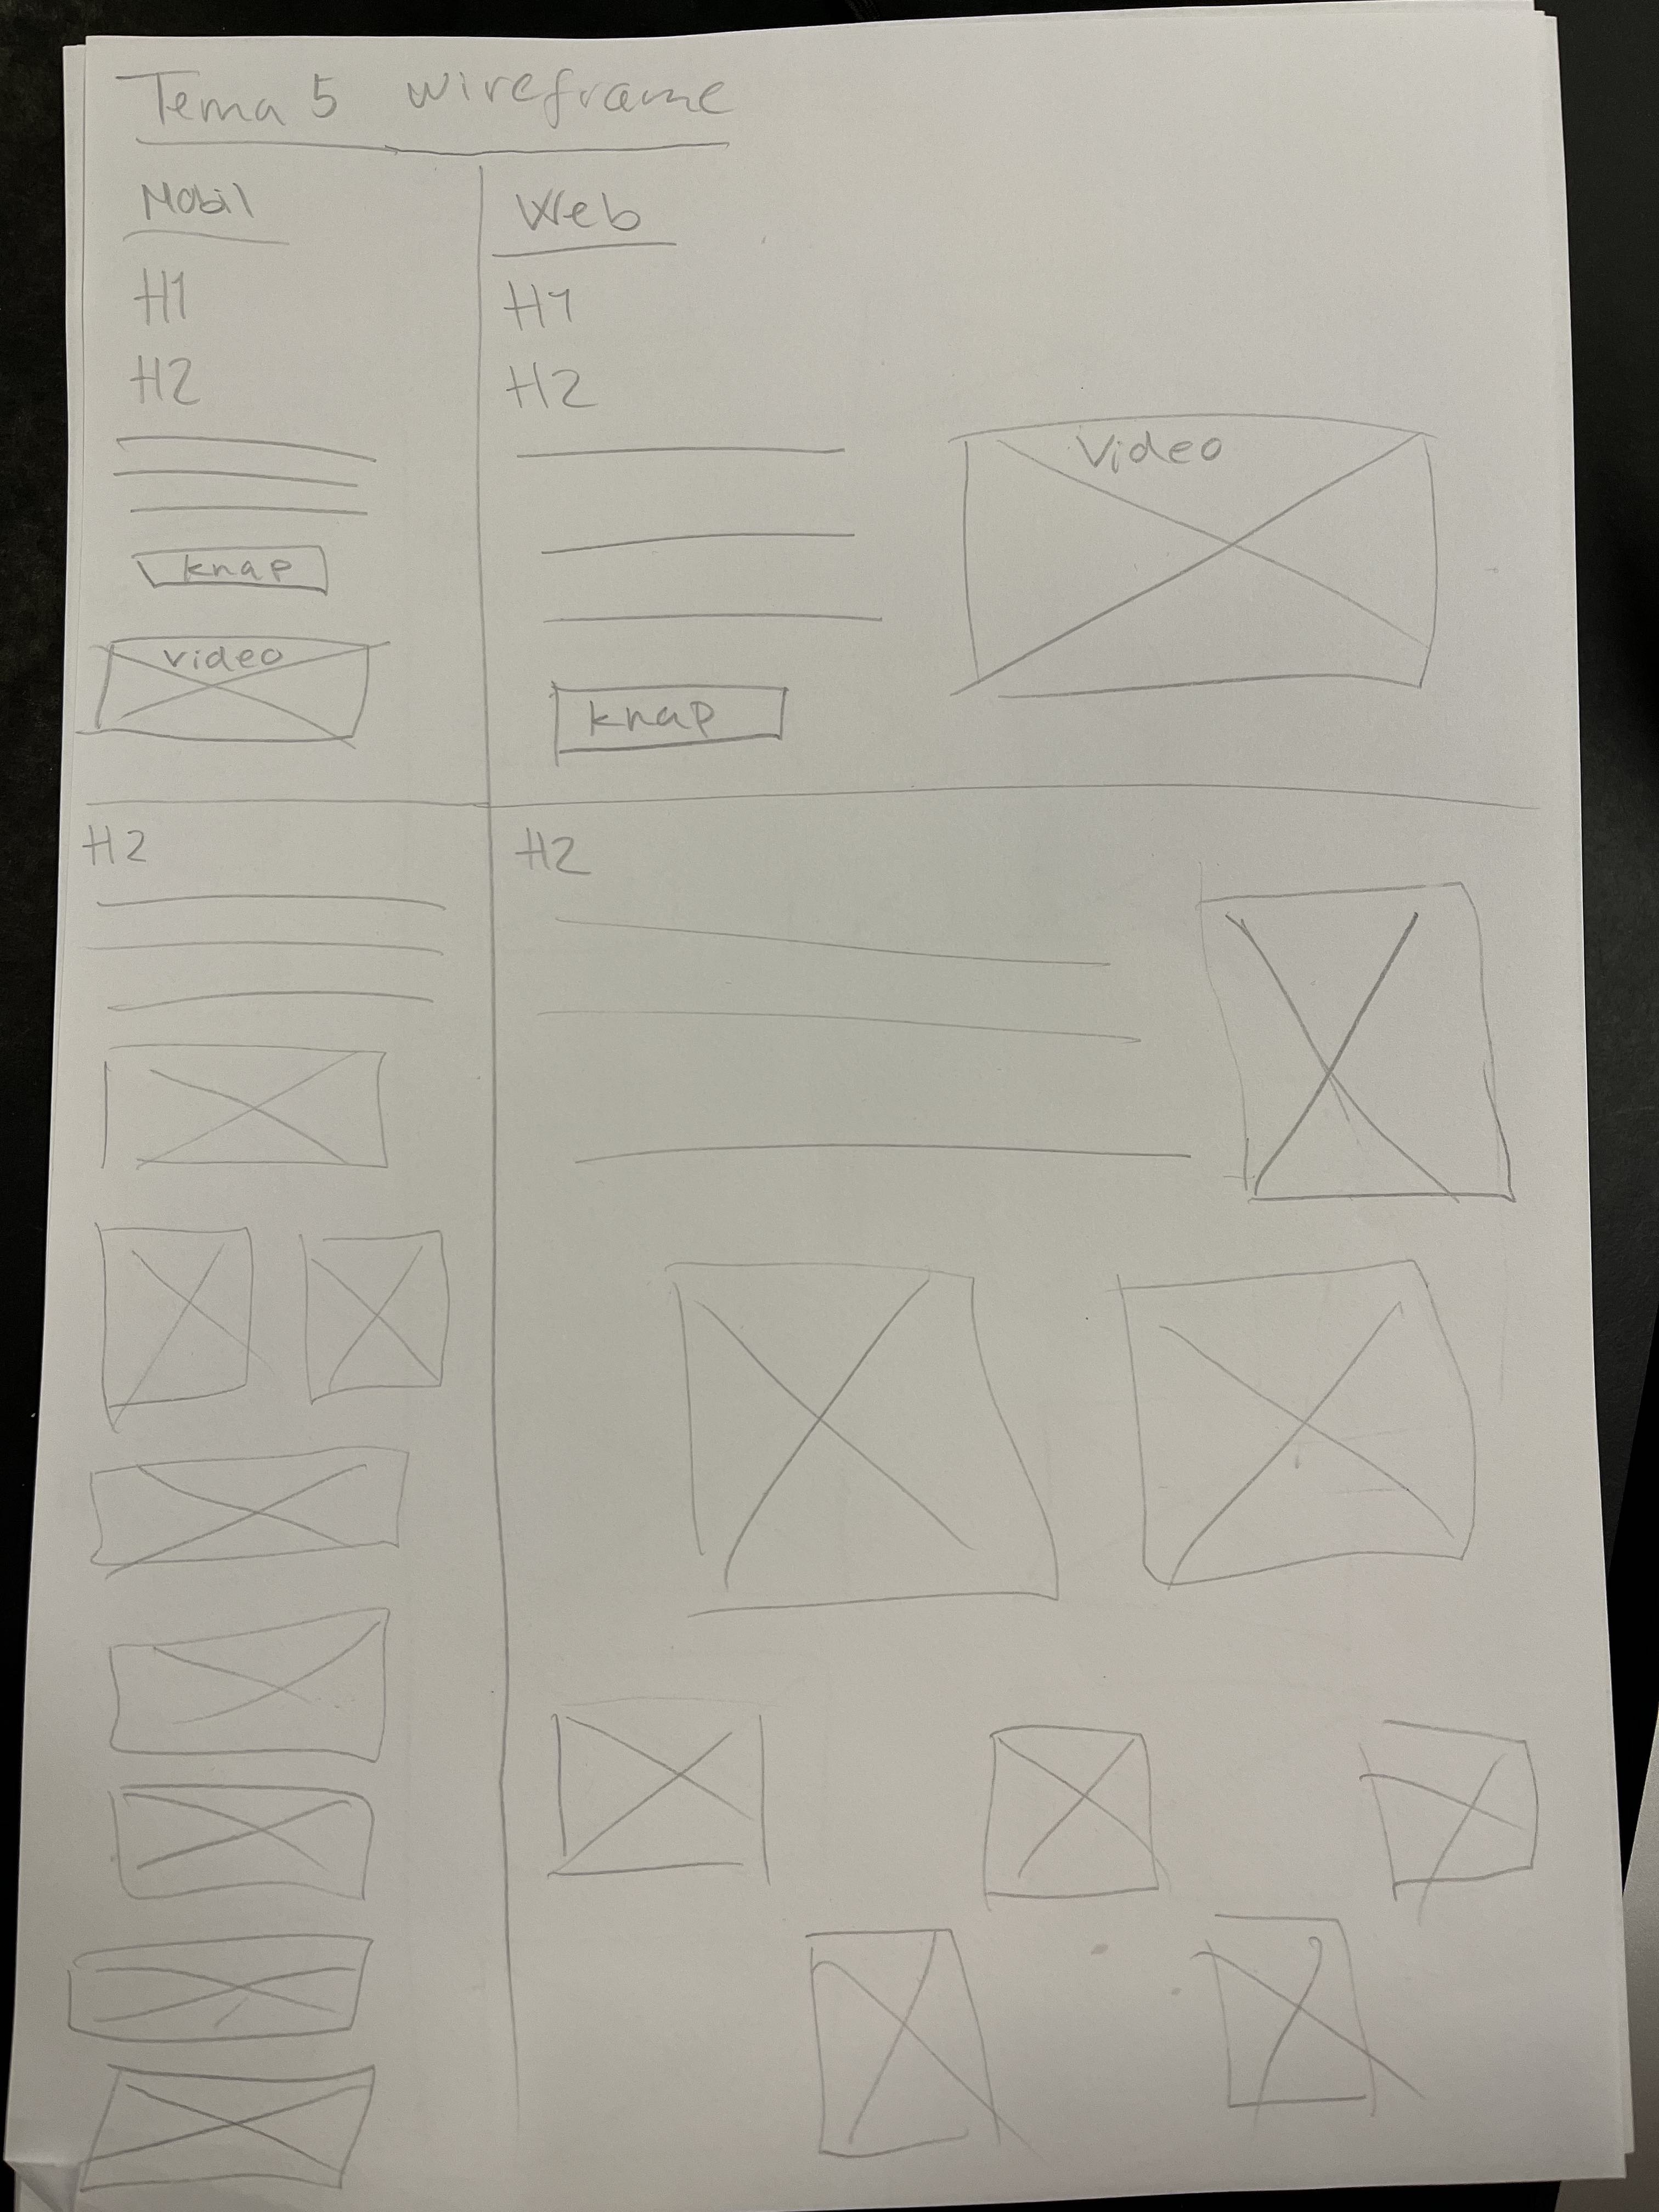 Tema 5 wireframe
Mobil
H1
H2
knap
video
H2
Web
H1
H2
Video
knap
H2